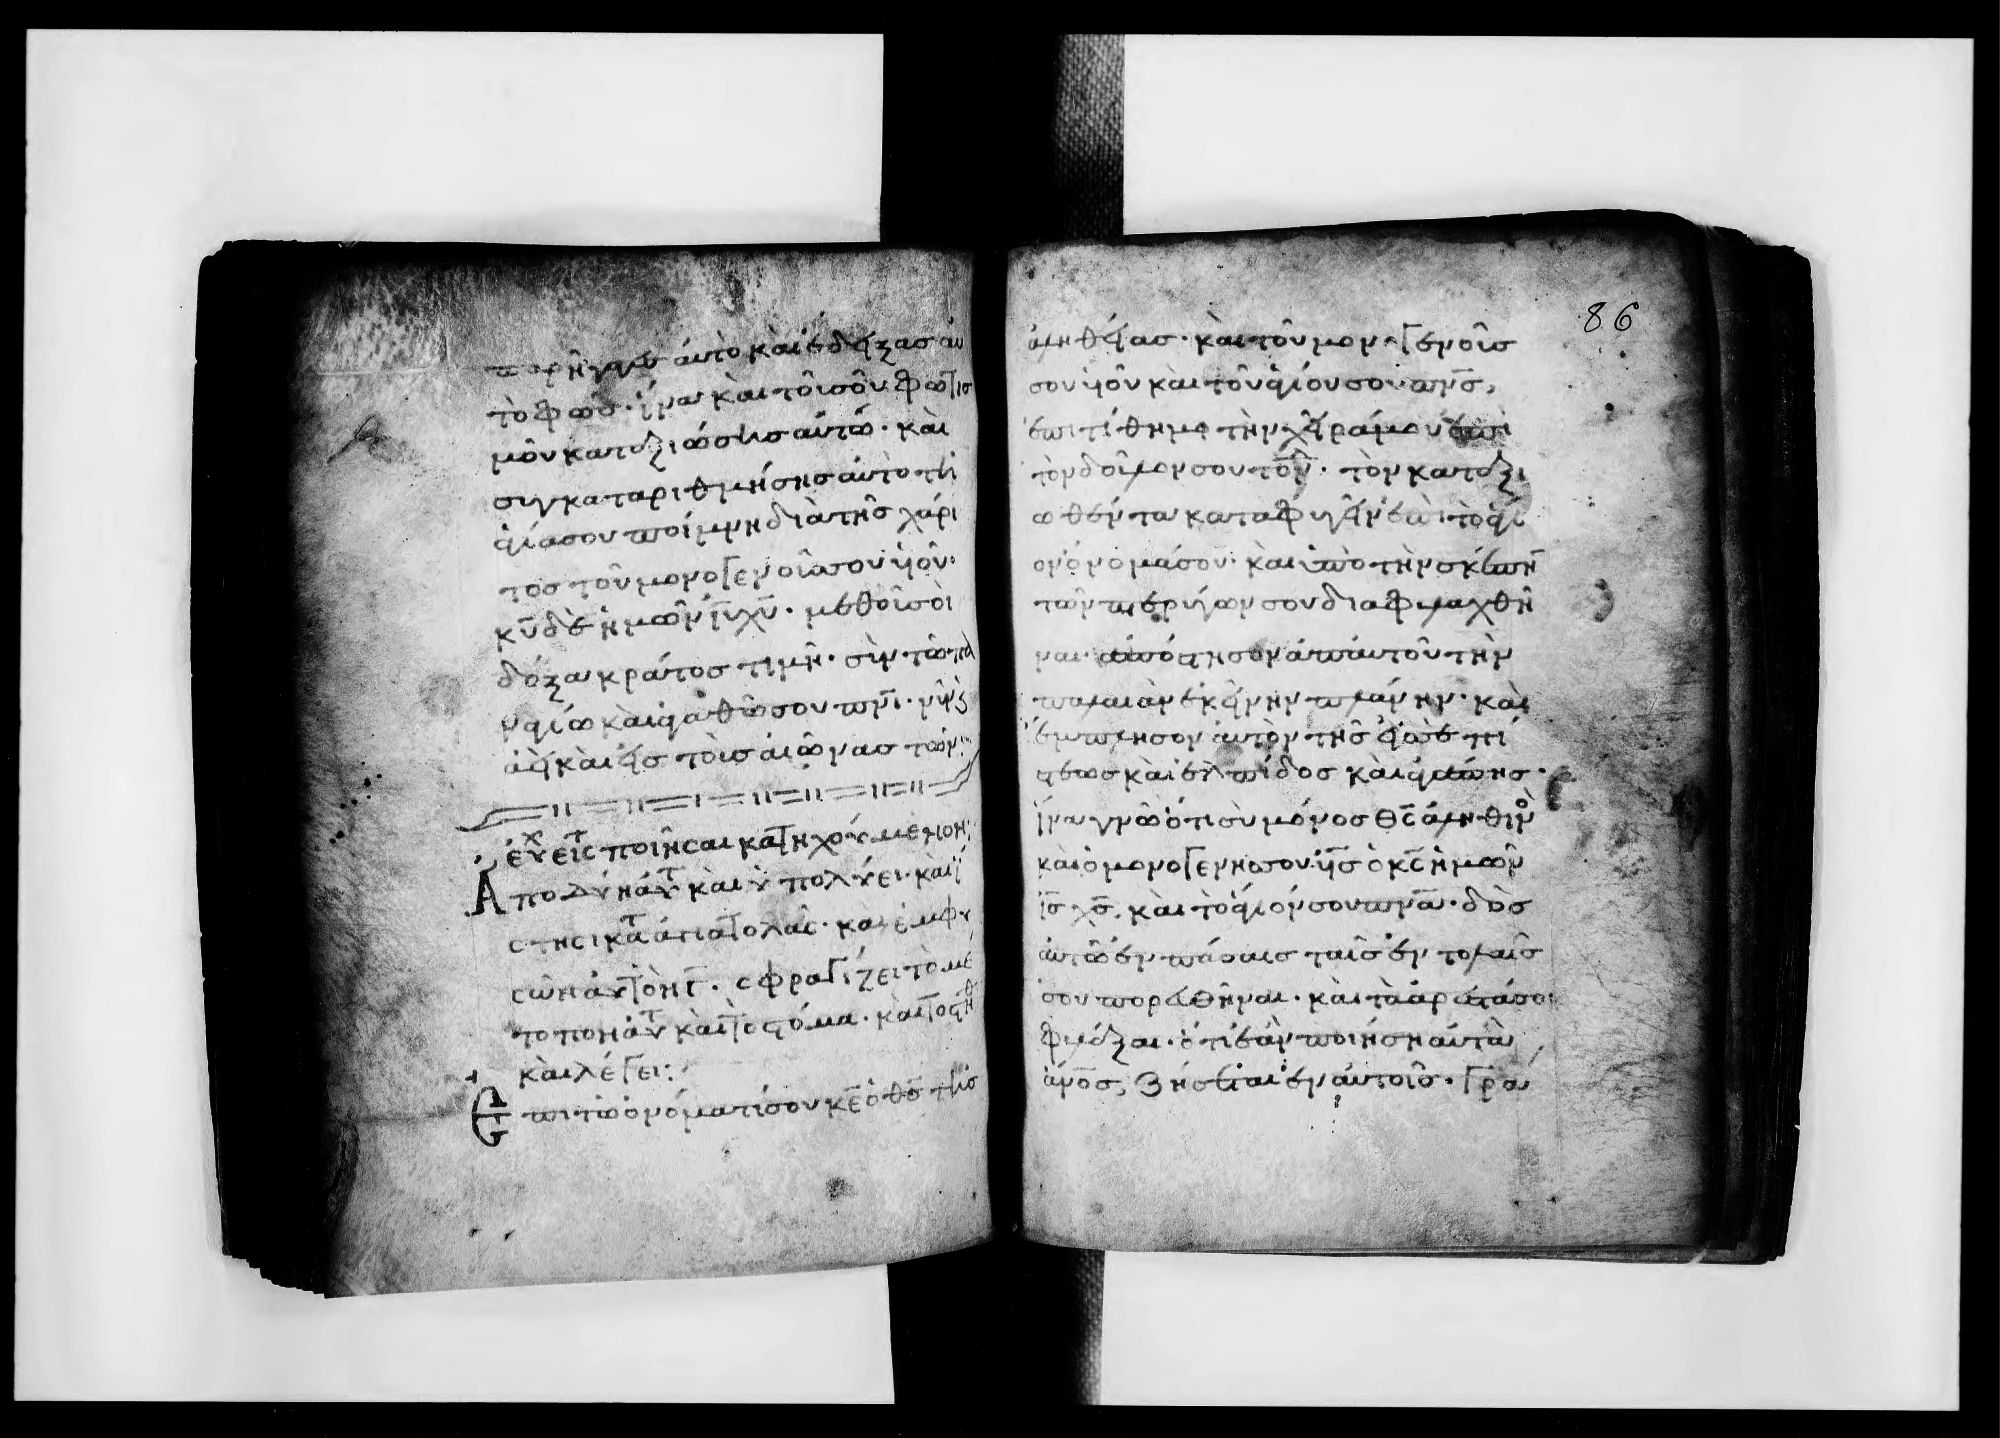 παρῆγαγες ἀυτὸ καὶ ἐδειξας ἀυ
τὸ φῶς· ἵνα καὶ τοῖ σοῦ φωτισ
μοῦ καταξιώσης αὐτῶ· καὶ
συγκαταριθμήσης ἀυτὸ τῆ
ἁγία σου ποίμνη διὰ τῆς χάρι
τος τοῦ μονογενοῖς σου ὑιοῦ·
κ̅υ̅ δὲ ἡμῶν ι̅υ̅ χ̅υ̅· μεθ οῖ σοὶ
δόξα κράτος τιμὴ· σὺν τῶ πα
ναγίω καὶ ἀγαθῶ σου πν̅ι̅· νῦν ϛ
ἀεὶ καὶ εἰς τοὺς αἰῶνας τῶν:
ἐυχ εἰς τ ποιῆσαι κατηχούμενον:
Ἀποδύει ἀυτ καὶ ὑπολύει· καὶ ἵ
στησι κατ ἀνατολὰς· καὶ ἐμφυ
σῶν ἀυτὸν γ̅· σφραγίζει τὸ μέ
τοπον ἀυτ καὶ τὸ στόμα· καὶ τὸ στῆθ
καὶ λέγει:
Ἐπι τῶ ὀνόματί σου κ̅ε̅ ὁ θ̅ς̅ τῆς
86
ἀληθείας· καὶ τοῦ μονογενοῖς
σου ὑιοῦ καὶ τοῦ ἁγίου σου πν̅ς̅,
ἐπιτίθημι τὴν χεῖρά μου ἐπὶ
τὸν δοῖλον σου τόν̅· τὸν καταξι
ωθέντα καταφυγεῖν ἐπὶ τὸ ἅγι
ον ὄνομά σου· καὶ ὑπὸ τὴν σκέπη
τῶν πτερύγων σου διαφυλαχθῆ
ναι· ἀπόστησον ἀπ ἀυτοῦ τὴν
παλαιὰν ἐκείνην πλάνην· καὶ
ἔμπλησον ἀυτὸν τῆς εἰς σὲ πί
στεως καὶ ἐλπίδος καὶ ἀγάπης·
ἵνα γνῶ ὅτι σὺ μόνος θ̅ς̅ ἀληθινὸ
καὶ ὁ μονογενής σου ὑ̅ς̅ ὁ κ̅ς̅ ἡμῶν
ι̅ς̅ χ̅ς̅, καὶ τὸ ἅγιόν σου πν̅α̅· δὸς
ἀυτῶ ἐν πάσαις ταῖς ἐντολαῖς
σου πορευθῆναι· καὶ τὰ ἀρεστά σοι
φυλάξαι· ὅτι ἐὰν ποιήση ἀυτὰ
ἄνο̅ς̅, ζήσεται ἐν ἀυτοῖς· Γρά